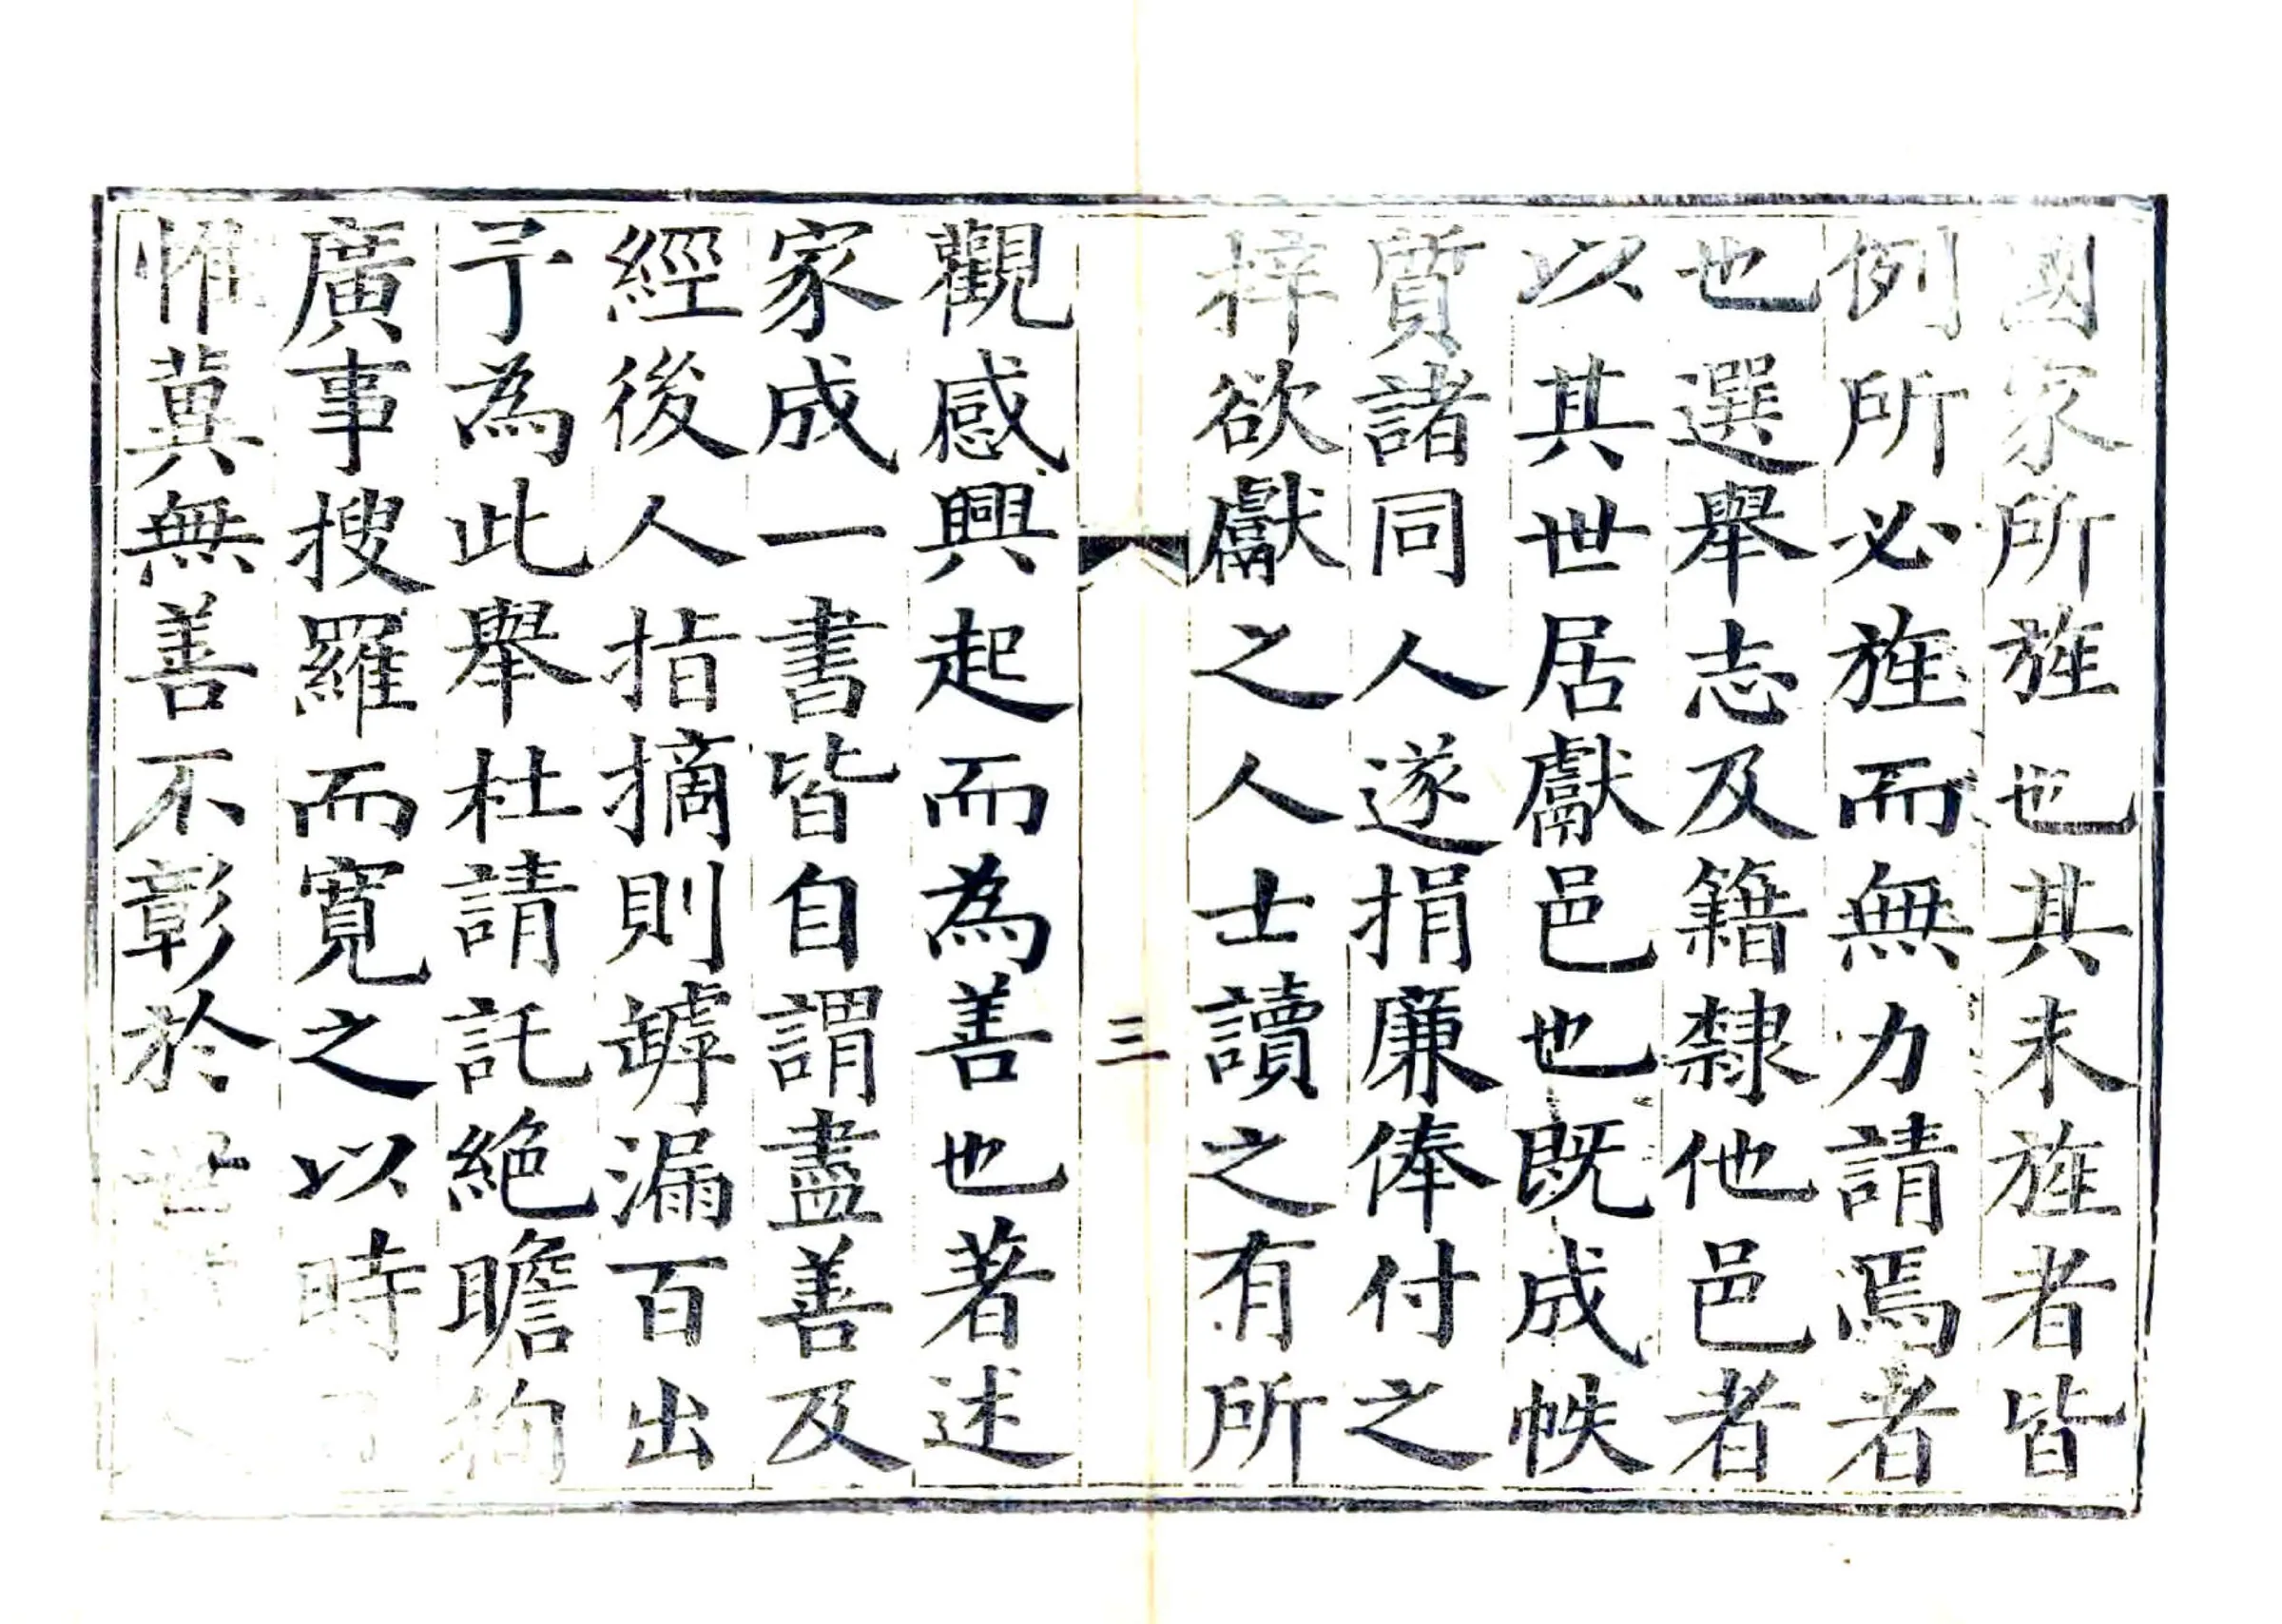 國家所旌也其未旌者皆
例所必旌而無力請焉者
也選舉志及籍隸他邑者
以其世居獻邑也既成帙
質諸同人遂捐廉俸付之
梓欲獻之人士讀之有所
三
觀感興起而為善也著述
家成一書皆自謂盡善及
經後人指摘則罅漏百出
予為此舉杜請託絕瞻徇
廣事搜羅而寬之以時
惟冀無善不彰於世